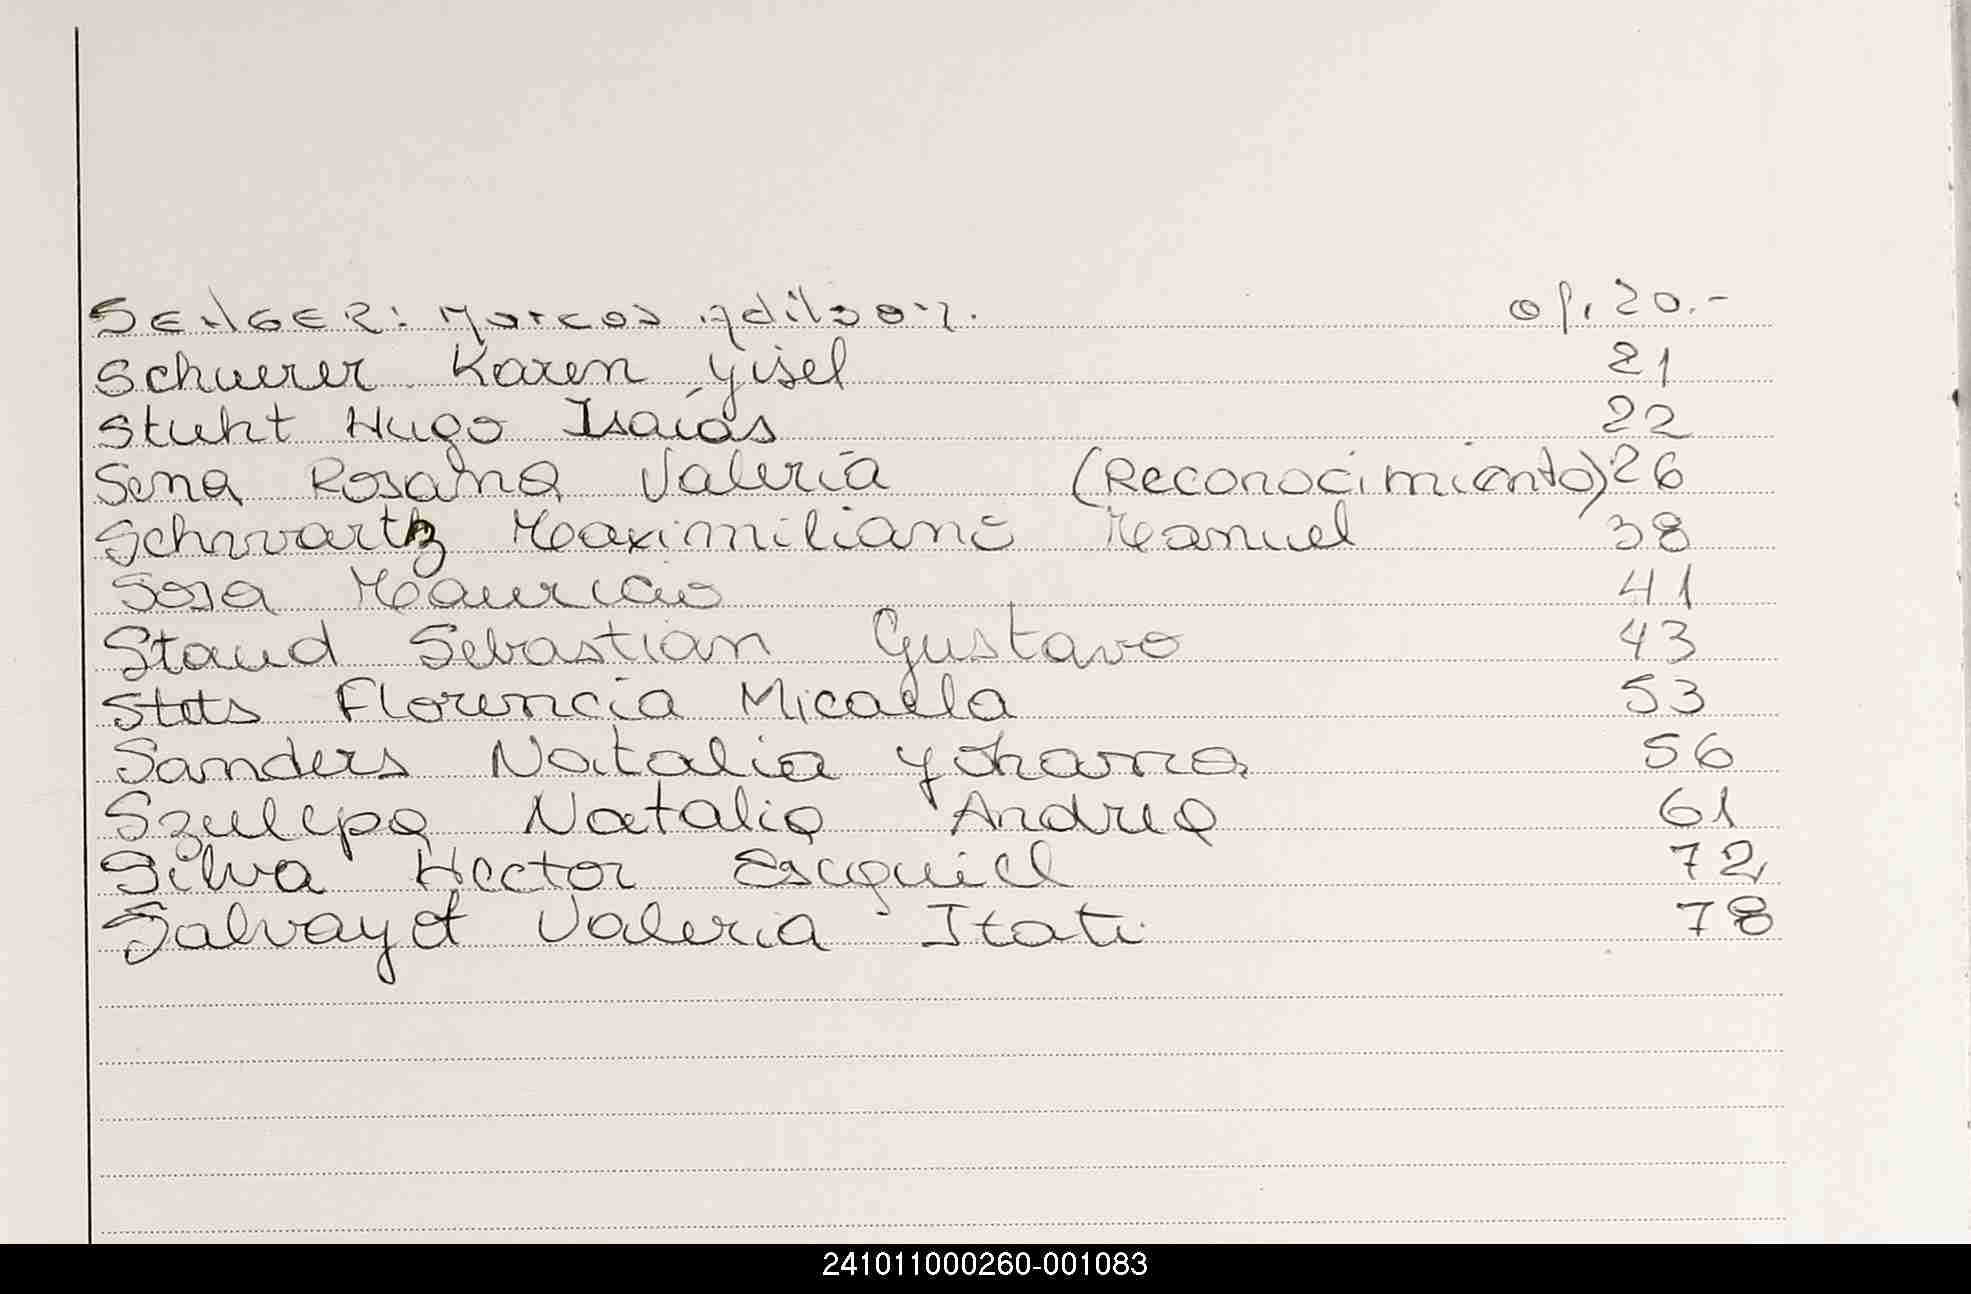 SENGER: Marcos Adilson. of. 20.-
Schuerer Karen Yisel 21
Stuht Hugo Isaías 22
Sena Rosana Valeria (Reconocimiento) 26
Schwartz Maximiliano Manuel 38
Sosa Mauricio 41
Staud Sebastian Gustavo 43
Stets Florencia Micaela 53
Sanders Natalia Yohanna 56
Szulepa Natalia Andrea 61
Silva Hector Esequiel 72
Salvayot Valeria Itati 78
241011000260-001083